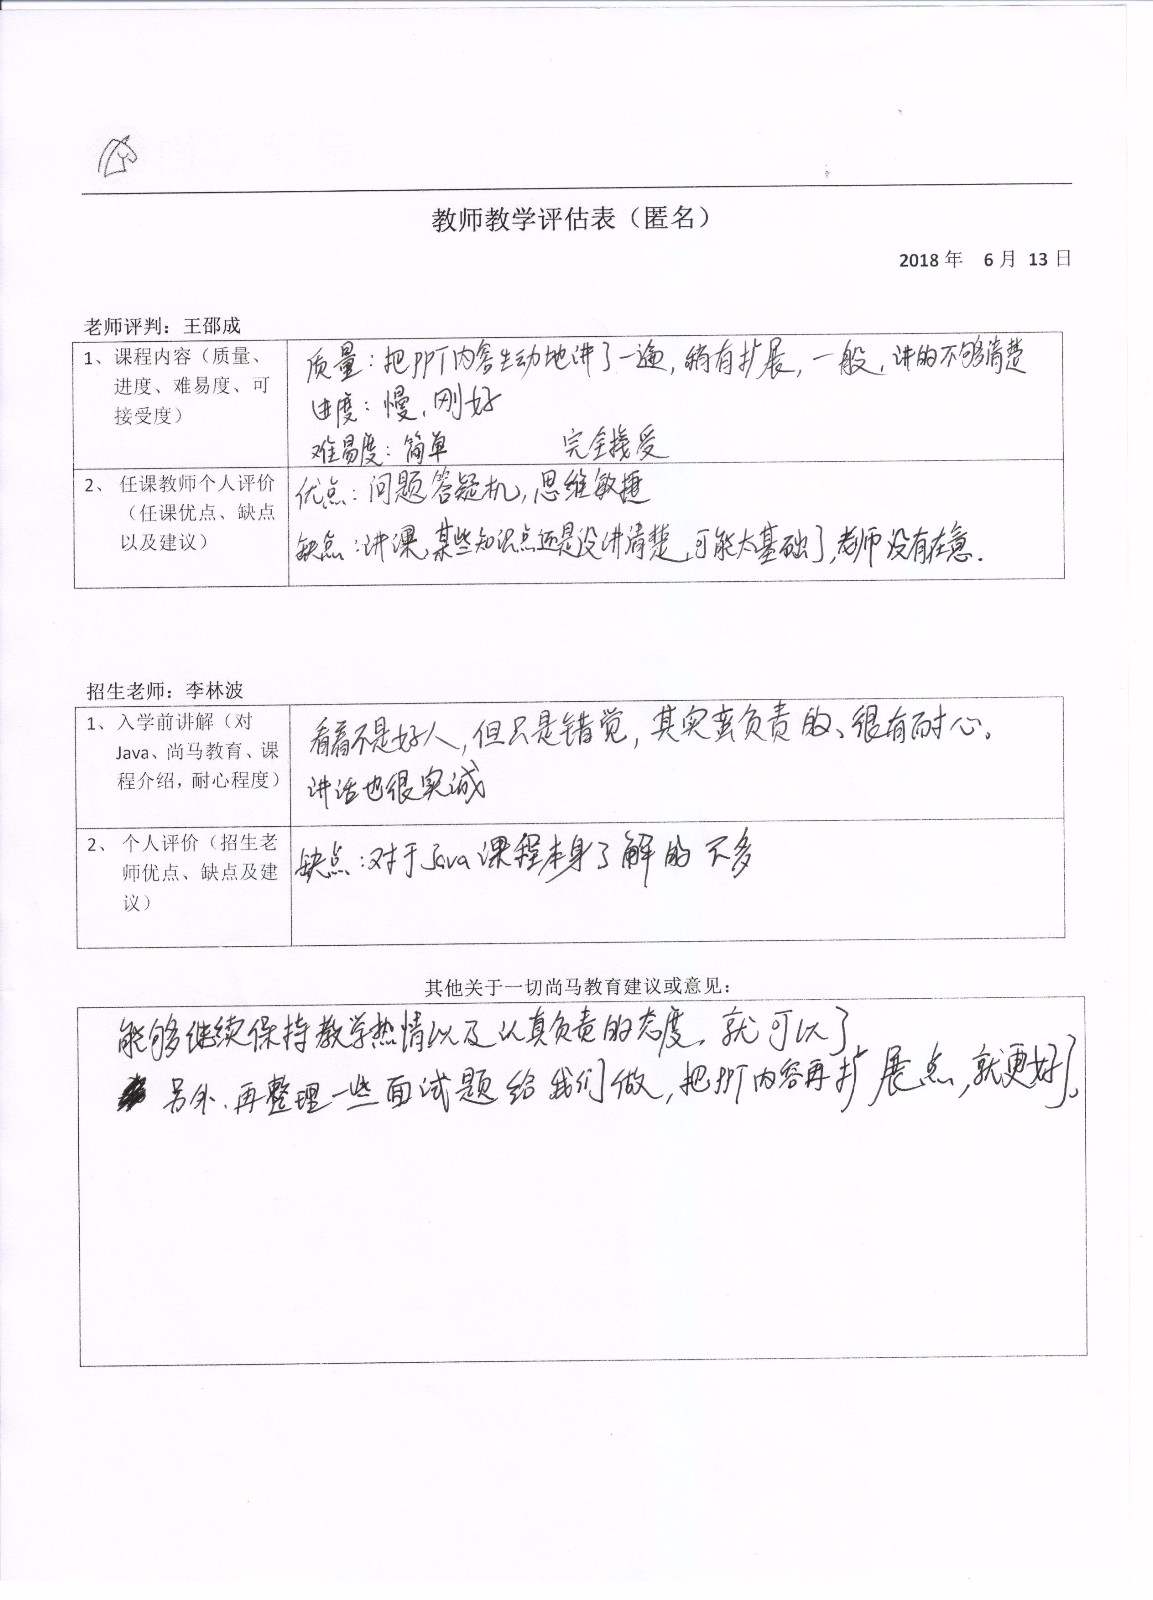 教师教学评估表（匿名）
2018 年 6 月 13 日
老师评判：王邵成
1、课程内容（质量、
进度、难易度、可
接受度）
质量：把PPT内容生动地讲了一遍，稍有扩展，一般，讲的不够清楚
进度：慢，刚好
难易度：简单 完全接受
2、任课教师个人评价
（任课优点、缺点
以及建议）
优点：问题答疑机，思维敏捷
缺点：讲课，某些知识点还是没讲清楚，可能太基础了，老师没有在意.
招生老师：李林波
1、入学前讲解（对
Java、尚马教育、课
程介绍，耐心程度）
看着不是好人，但只是错觉，其实蛮负责的、很有耐心。
讲话也很实诚
2、个人评价（招生老
师优点、缺点及建
议）
缺点：对于Java课程本身了解的不多
其他关于一切尚马教育建议或意见：
能够继续保持教学热情以及认真负责的态度，就可以了
另外，再整理一些面试题给我们做，把PPT内容再扩展点，就更好了。